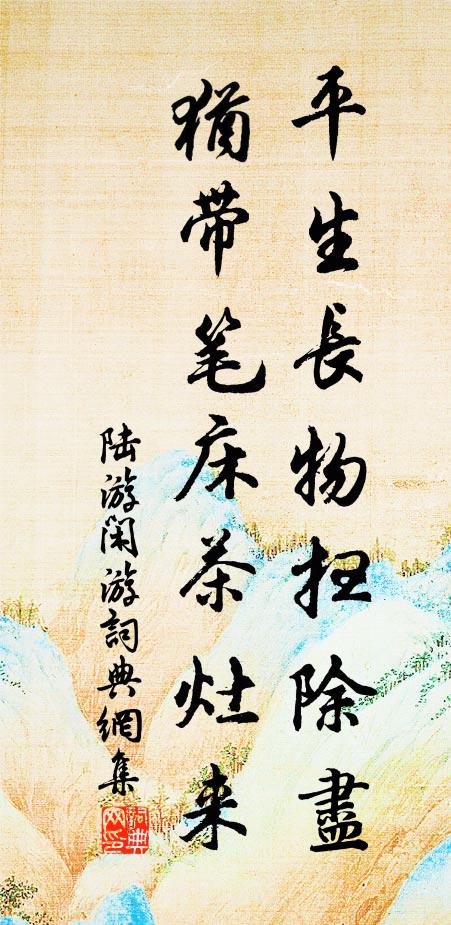 平生長物扫除盡
猶带笔床茶灶来
陆游闲游詞典網集